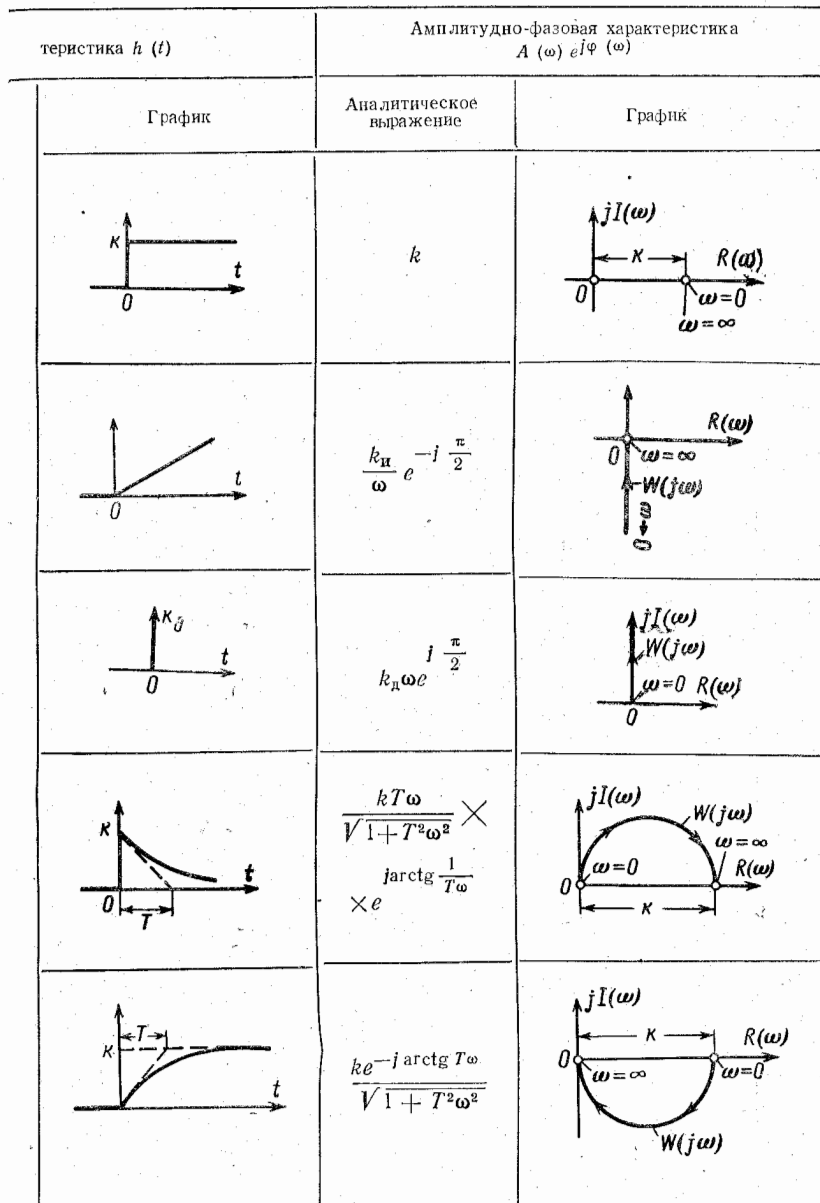 теристика h (t)
Амплитудно-фазовая характеристика
A (ω) e^{jφ (ω)}
График
Аналитическое
выражение
График
к
t
0
k
jI(ω)
к
R(ω)
0
ω=0
ω=∞
t
0
k_и/ω e^{-j π/2}
R(ω)
0
ω=∞
W(jω)
ω
0
к_д
t
0
k_д ω e^{j π/2}
jI(ω)
W(jω)
ω=0 R(ω)
0
к
t
0
T
kTω/√(1+T²ω²) ×
×e^{jarctg 1/Tω}
jI(ω)
W(jω)
ω=∞
ω=0
R(ω)
0
к
T
к
t
0
ke^{-j arctg Tω}/√(1 + T²ω²)
jI(ω)
к
R(ω)
0
ω=∞
ω=0
W(jω)